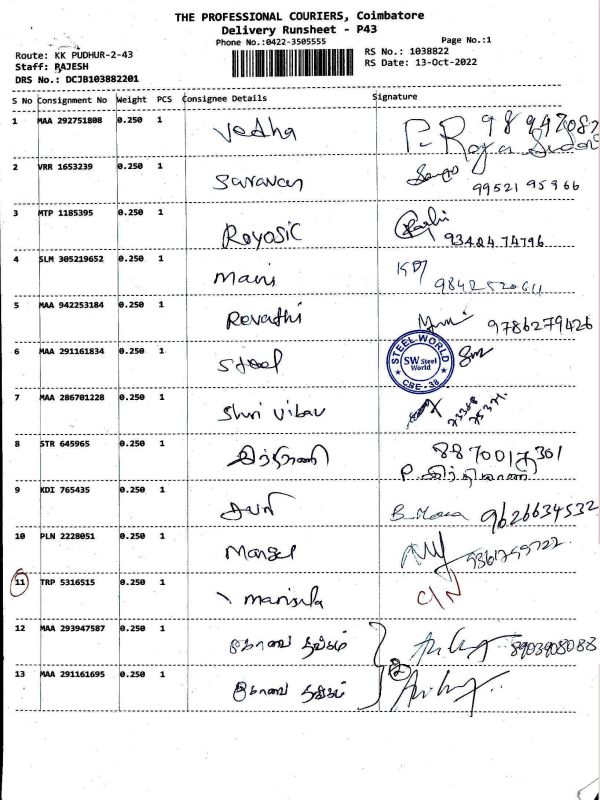 THE PROFESSIONAL COURIERS, Coimbatore
Delivery Runsheet - P43
Phone No.:0422-3505555
Page No.:1
Route: KK PUDHUR-2-43
RS No.: 1038822
Staff: RAJESH
RS Date: 13-Oct-2022
DRS No.: DCJB103882201
S No Consignment No Weight PCS Consignee Details Signature
1 MAA 292751808 0.250 1 Vedha
2 VRR 1653239 0.250 1 Saravan 99521 95966
3 MTP 1185395 0.250 1 Royosic 93424 74796
4 SLM 305219652 0.250 1 Mani 9842520611
5 MAA 942253184 0.250 1 Revathi 9786279426
6 MAA 291161834 0.250 1 Steel
STEEL WORLD
SW Steel
World
CBE-38
7 MAA 286701228 0.250 1 Shri Vibav 73388 75371
8 STR 645965 0.250 1 8870017301
9 KDI 765435 0.250 1 9626634532
10 PLN 2228051 0.250 1
11 TRP 5316515 0.250 1 C/N
12 MAA 293947587 0.250 1 கோவை தங்கம் 8903908088
13 MAA 291161695 0.250 1 கோவை தங்கம்
2